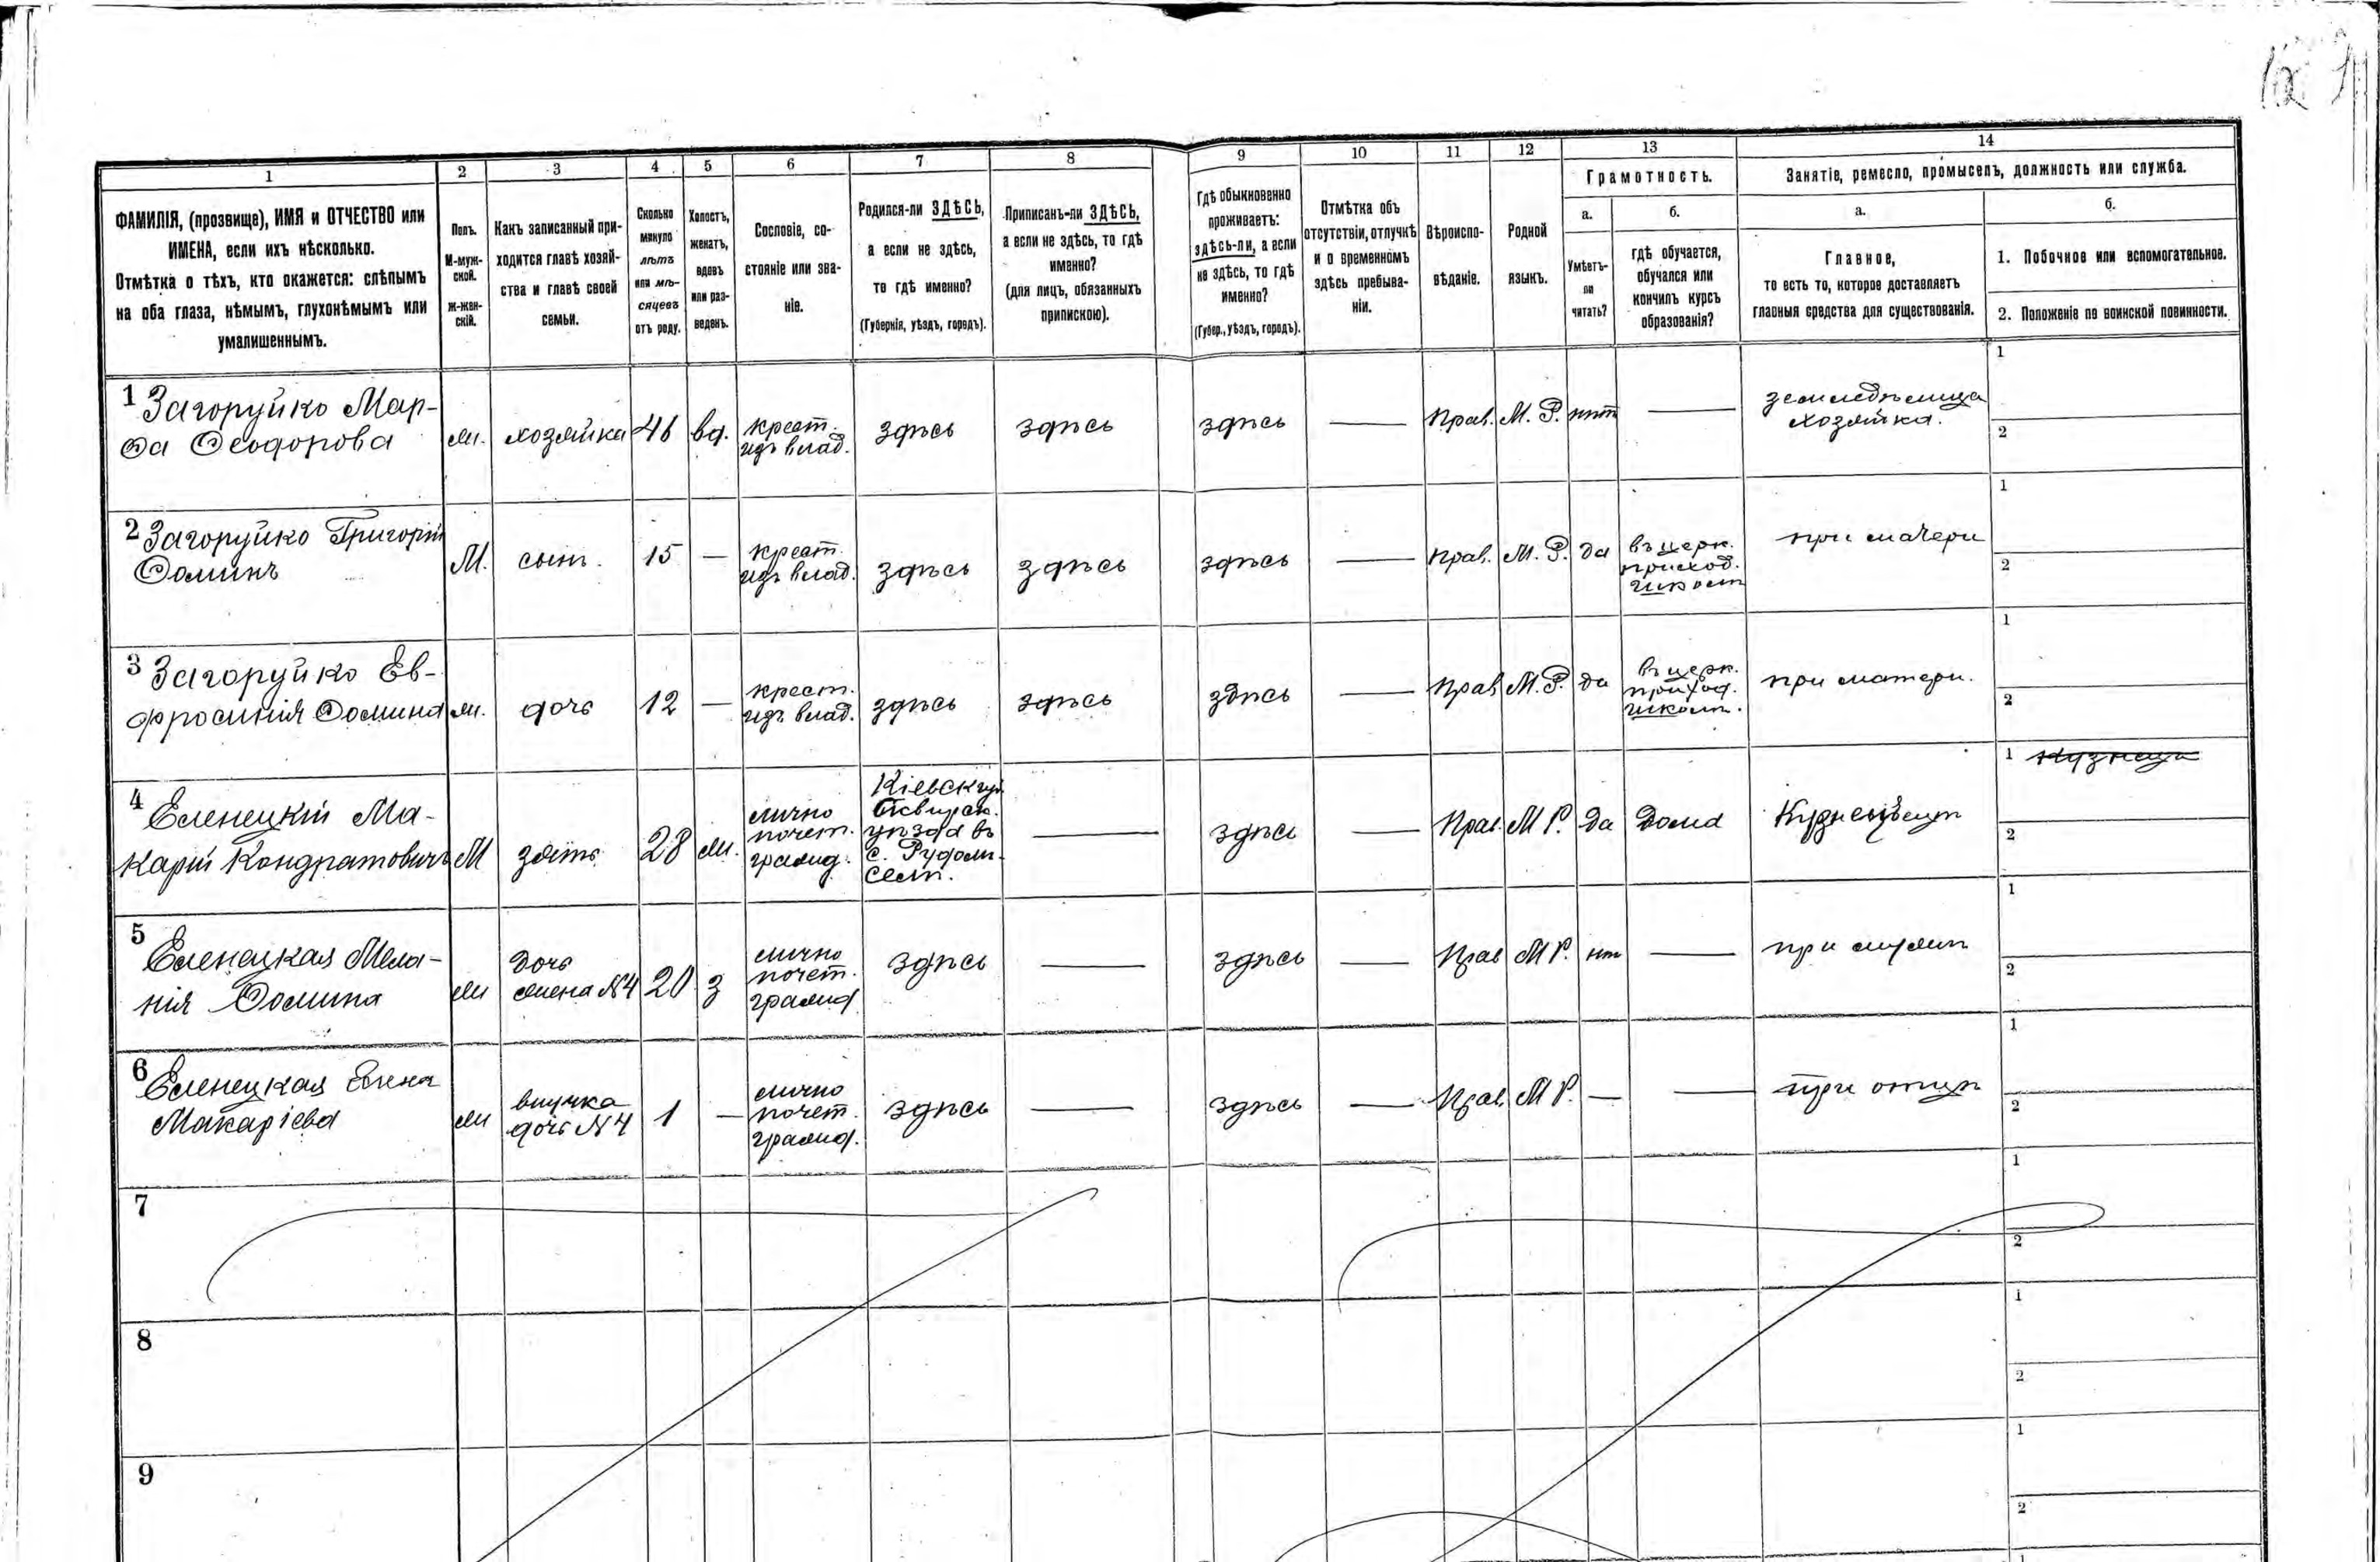 1
2
3
4
5
6
7
8
9
10
11
12
13
14
ФАМИЛІЯ, (прозвище), ИМЯ и ОТЧЕСТВО или
ИМЕНА, если ихъ нѣсколько.
Отмѣтка о тѣхъ, кто окажется: слѣпымъ
на оба глаза, нѣмымъ, глухонѣмымъ или
умалишеннымъ.
Полъ.
М-муж-
ской.
Ж-жен-
скій.
Какъ записанный при-
ходится главѣ хозяй-
ства и главѣ своей
семьи.
Сколько
минуло
лѣтъ
или мѣ-
сяцевъ
отъ роду.
Холостъ,
женатъ,
вдовъ
или раз-
веденъ.
Сословіе, со-
стояніе или зва-
ніе.
Родился-ли ЗДѢСЬ,
а если не здѣсь,
то гдѣ именно?
(Губернія, уѣздъ, городъ).
Приписанъ-ли ЗДѢСЬ,
а если не здѣсь, то гдѣ
именно?
(для лицъ, обязанныхъ
припискою).
Гдѣ обыкновенно
проживаетъ:
здѣсь-ли, а если
не здѣсь, то гдѣ
именно?
(Губер., уѣздъ, городъ).
Отмѣтка объ
отсутствіи, отлучкѣ
и о временномъ
здѣсь пребыва-
ніи.
Вѣроиспо-
вѣданіе.
Родной
языкъ.
Грамотность.
а.
Умѣетъ-
ли
читать?
б.
гдѣ обучается,
обучался или
кончилъ курсъ
образованія?
Занятіе, ремесло, промыселъ, должность или служба.
а.
Главное,
то есть то, которое доставляетъ
главныя средства для существованія.
б.
1. Побочное или вспомогательное.
2. Положеніе по воинской повинности.
1 Загоруйко Мар-
ѳа Ѳеодорова
ж.
хозяйка
46
вд.
крест.
изъ влад.
здѣсь
здѣсь
здѣсь
—
Прав.
М. Р.
нѣт
—
земледѣлица
хозяйка.
1
2
2 Загоруйко Григорій
Ѳоминъ
М.
сынъ.
15
—
крест.
изъ влад.
здѣсь
здѣсь
здѣсь
—
прав.
М. Р.
да
въ церк.
приход.
школѣ
при матери
1
2
3 Загоруйко Ев-
фросинія Ѳомина
ж.
дочь
12
—
крест.
изъ влад.
здѣсь
здѣсь
здѣсь
—
прав
М. Р.
да
въ церк.
приход.
школѣ.
при матери.
1
2
4 Еленецкій Ма-
карій Кондратовичъ
М
зять
28
ж.
лично
почет.
гражд.
Кіевск губ
Сквирск.
уѣзда въ
с.
—
здѣсь
—
Прав.
М Р.
да
дома
1 кузнецъ
2
5 Еленецкая Мела-
нія Ѳомина
ж
дочь
жена №4
20
з
лично
почет.
гражд
здѣсь
—
здѣсь
—
Прав
М Р.
нѣт
—
при мужѣ
1
2
6 Еленецкая Елена
Макаріева
ж
внучка
дочь №4
1
—
лично
почет.
гражд.
здѣсь
—
здѣсь
—
Прав.
М Р.
—
—
при отцѣ
1
2
7
1
2
8
1
2
9
1
2
1